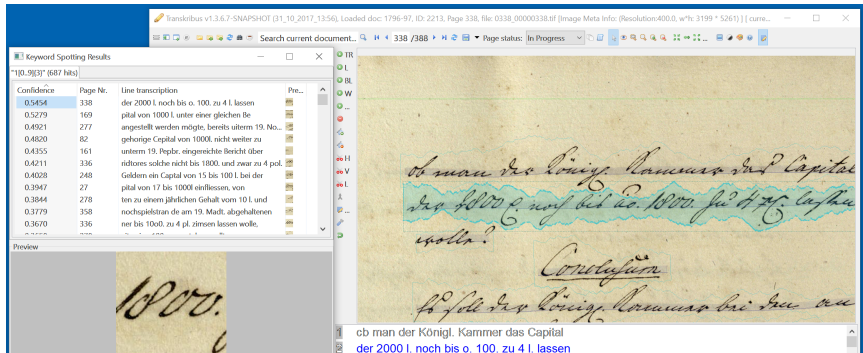 Transkribus v1.3.6.7-SNAPSHOT (31_10_2017_13:56), Loaded doc: 1796-97, ID: 2213, Page 338, file: 0338_00000338.tif [Image Meta Info: (Resolution:400.0, w*h: 3199 * 5261) ] [ curre...
Search current document...
338 /388
Page status: In Progress
Keyword Spotting Results
"1[0..9]{3}" (687 hits)
Confidence Page Nr. Line transcription Pre...
0.5454 338 der 2000 l. noch bis o. 100. zu 4 l. lassen
0.5279 169 pital von 1000 l. unter einer gleichen Be
0.4921 277 angestellt werden mögte, bereits uiterm 19. No...
0.4820 82 gehorige Cepital von 1000l. nicht weiter zu
0.4355 161 unterm 19, Pepbr. eingereichte Bericht über
0.4211 336 ridtores solche nicht bis 1800. und zwar zu 4 pol.
0.4028 248 Geldern ein Captal von 15 bis 100 l. bei der
0.3947 27 pital von 17 bis 1000l einfliessen, von
0.3844 278 ten zu einem jährlichen Gehalt vom 10 l. und
0.3779 358 nochspielstran de am 19. Madt. abgehaltenen
0.3670 336 ner bis 10o0. zu 4 pl. zimsen lassen wolle,
Preview
1800.
TR
L
BL
W
...
H
V
L
ob man der Königl. Kammer das Capital
der 2000 l. noch bis ao. 1800. zu 4 pC. lassen
wolle?
Conclusum
Es soll der Königl. Kammer bei den an
1 cb man der Königl. Kammer das Capital
2 der 2000 l. noch bis o. 100. zu 4 l. lassen